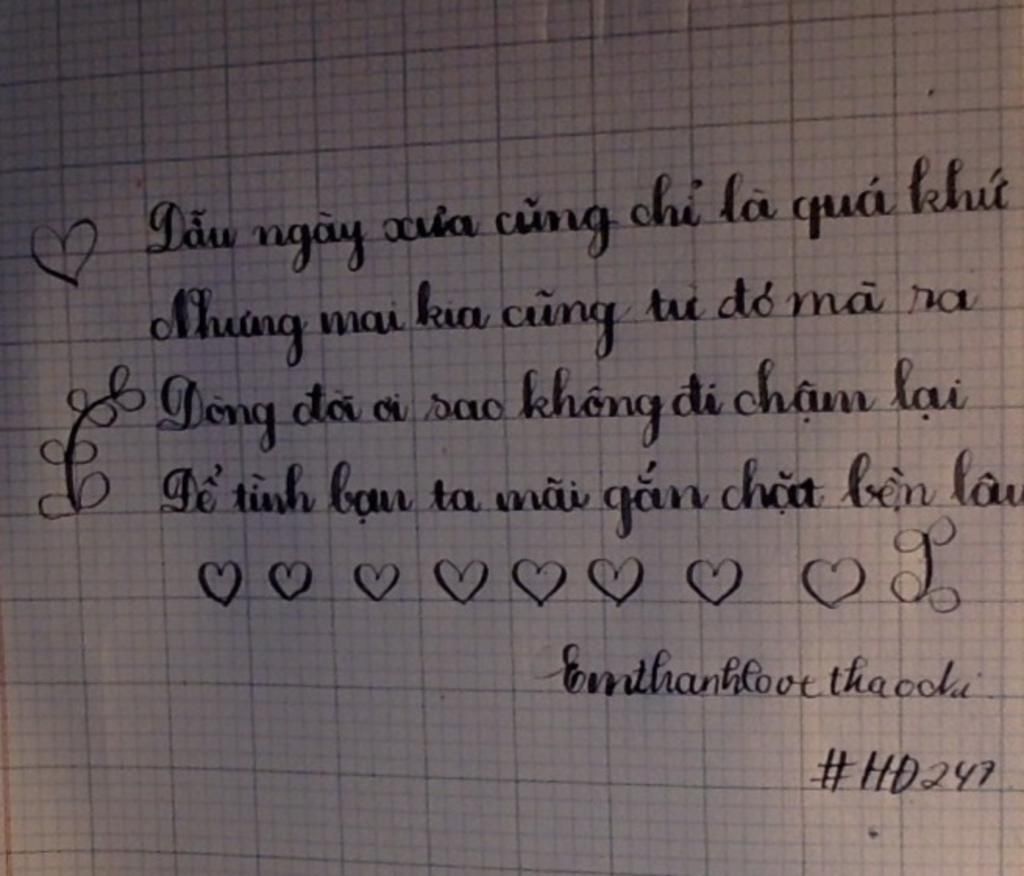 Dẫu ngày xưa cũng chỉ là quá khứ
Nhưng mai kia cũng từ đó mà ra
Dòng đời ơi sao không đi chậm lại
Để tình bạn ta mãi gắn chặt bền lâu
#HD247